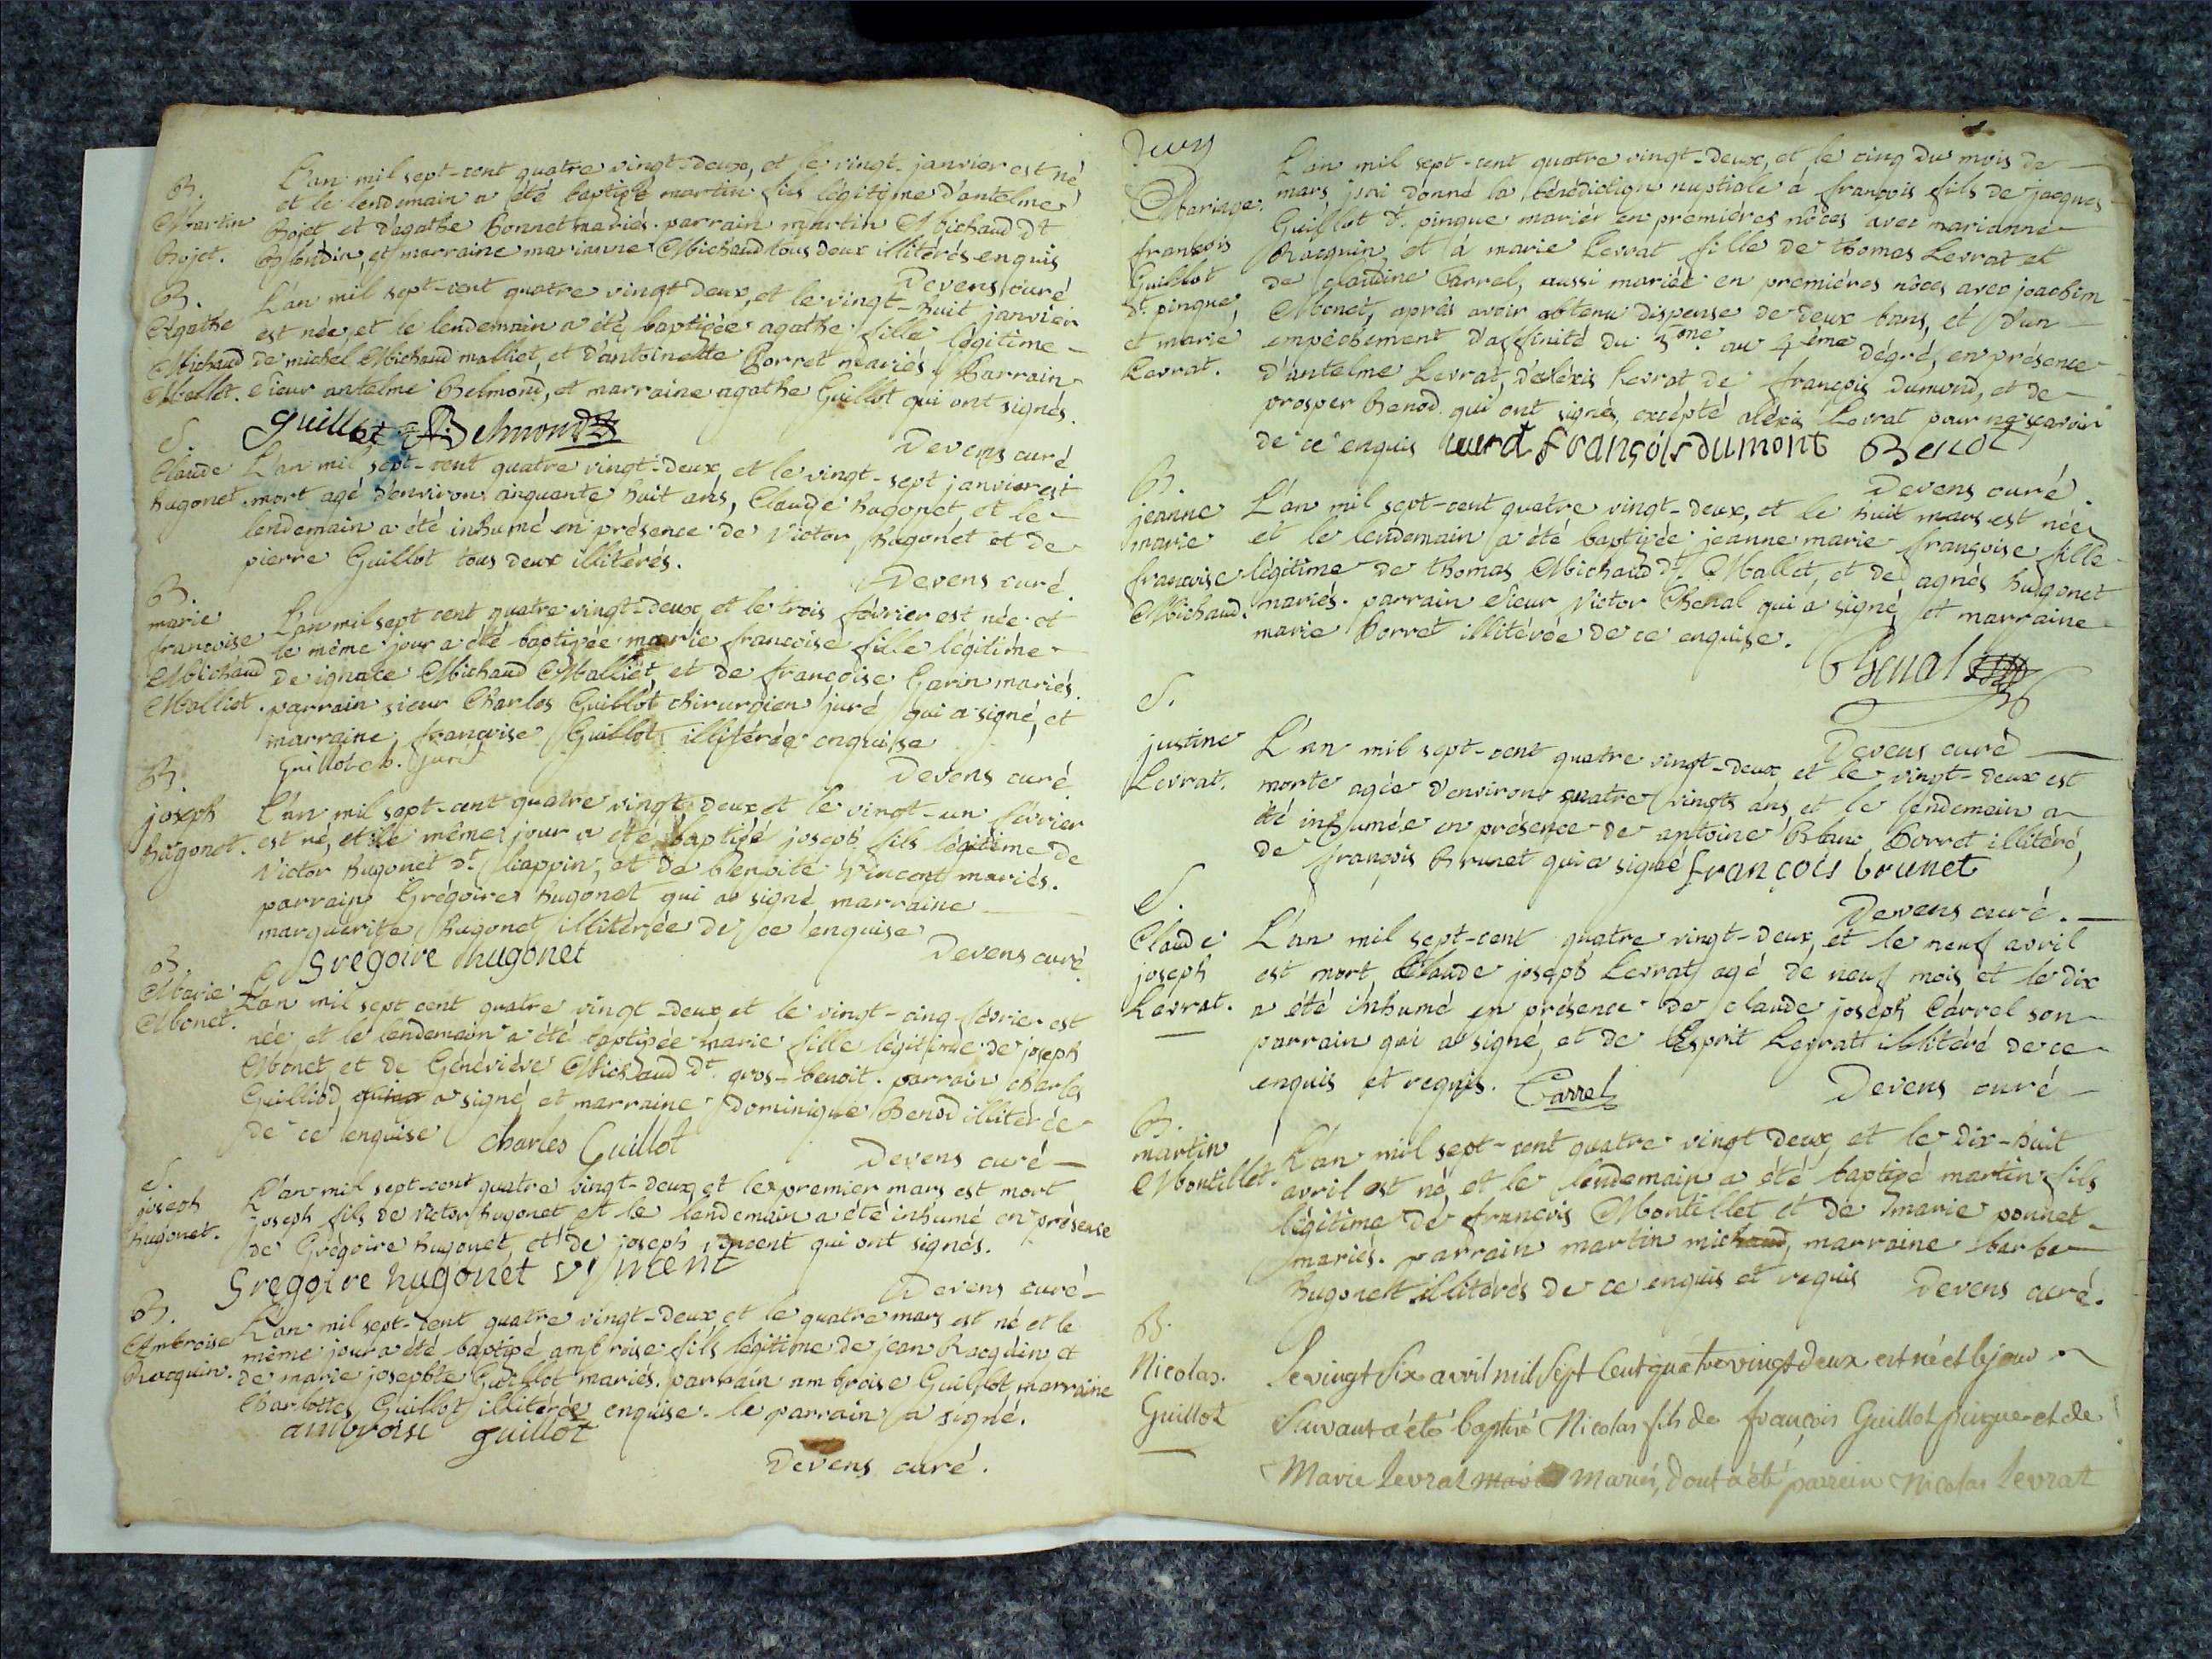 B.
Martin
Bojet.
L'an mil sept-cent quatre vingt-deux, et le vingt janvier est né
et le lendemain a été baptisé martin fils légitime d'antelme
Bojet et d'agathe Bonnet mariés. parrain martin Michaud dt
Blondin, et marraine marianne Michaud tous deux illitérés enquis
Devens curé
B.
Agathe
Michaud
Mallet.
L'an mil sept-cent quatre vingt deux, et le vingt-huit janvier
est née, et le lendemain a été baptisée agathe fille légitime
de michel Michaud malliet, et d'antoinette Borret mariés. Parrain
sieur antelme Belmond, et marraine agathe Guillot qui ont signés.
guillot Belmond
Devens curé
S.
Claude
hugonet.
L'an mil sept-cent quatre vingt-deux, et le vingt-sept janvier est
mort agé d'environ cinquante huit ans, Claude hugonet et le
lendemain a été inhumé en présence de Victor, hugonet et de
pierre Guillot tous deux illitérés.
Devens curé.
B.
marie
francoise
Michaud
Malliet.
L'an mil sept cent quatre vingt-deux, et le trois février est née et
le même jour a été baptisée marie francoise fille légitime
de ignace Michaud Malliet, et de francoise Garin mariés.
parrain sieur Charles Guillot chirurgien juré qui a signé, et
marraine francoise Guillot illitérée enquise
Guillot ch. juré
Devens curé
B.
joseph
hugonet.
L'an mil sept-cent quatre vingt deux et le vingt-un février
est né, et le même jour a été baptisé joseph fils légitime de
Victor hugonet dt frappin, et de benoite Vincent mariés.
parrain Grégoire hugonet qui a signé, marraine
marguerite hugonet illitérée de ce enquise
Gregoire hugonet
Devens curé
B.
Marie
Monet.
L'an mil sept cent quatre vingt-deux, et le vingt-cinq février est
née, et le lendemain a été baptisée marie fille légitime de joseph
Monet et de Généviéve Michaud dt. gros-benoit. parrain charles
Guilliod, a signé, et marraine Dominique Benod illitérée
de ce enquise
Charles Guillot
Devens curé
S.
joseph
hugonet.
L'an mil sept-cent quatre vingt-deux, et le premier mars est mort
joseph fils de Victor hugonet et le lendemain a été inhumé en présence
de Grégoire hugonet, et de joseph vincent qui ont signés.
Gregoire hugonet vincent
Devens curé
B.
Ambroise
Racquin.
L'an mil sept-cent quatre vingt-deux, et le quatre mars est né et le
même jour a été baptisé ambroise fils légitime de jean Racquin et
de marie josephte Guillot mariés. parrain ambroise Guillot, marraine
Charlotte Guillot illitérée enquise. le parrain a signé.
ambroise guillot
Devens curé.
Mariage.
francois
Guillot
dt. pingue,
et marie
Levrat.
L'an mil sept-cent quatre vingt-deux, et le cinq du mois de
mars j'ai donné la bénédiction nuptiale à francois fils de jacques
Guillot dt. pingue mariér en premiéres nôces avec marianne
Racquin, et à marie Levrat fille de thomas Levrat et
de claudine Carrel, aussi mariée en premiéres nôces avec joachim
Monet, aprés avoir obtenu dispense de deux bans, et d'un
empéchement d'affinité du 3eme au 4eme dégré, en présence
d'antelme Levrat, d'aléxis Levrat de françois dumond, et de
prosper Benod qui ont signés, excépté aléxis Levrat pour ne sçavoir
de ce enquis levrat françois dumont Benod
Devens curé.
B.
jeanne
marie
francoise
Michaud.
L'an mil sept-cent quatre vingt-deux, et le huit mars est née
et le lendemain a été baptisée jeanne marie françoise fille
légitime de thomas Michaud dt. Mallet, et de agnés hugonet
mariés. parrain sieur Victor Chenal qui a signé, et marraine
marie Borret illitérée de ce enquise.
Chenal
Devens curé
S.
justine
Levrat.
L'an mil sept-cent quatre vingt-deux, et le vingt-deux est
morte agée d'environ quatre vingts ans, et le lendemain a
été inhumée en présence de antoine Blanc Borret illitéré,
de françois Brunet qui a signé françois brunet
Devens curé.
S.
Claude
joseph
Levrat.
L'an mil sept-cent quatre vingt-deux, et le neuf avril
est mort Claude joseph Levrat agé de neuf mois et le dix
a été inhumé en présence de claude joseph Carrel son
parrain qui a signé, et de Esprit Levrat illitéré de ce
enquis et requis. Carrel
Devens curé
B.
martin
Montillet.
L'an mil sept-cent quatre vingt deux, et le dix-huit
avril est né, et le lendemain a été baptisé martin fils
légitime de francois Montillet et de marie ponnet
mariés. parrain martin michaud, marraine barbe
hugonet illitérés de ce enquis et requis Devens curé.
B.
Nicolas.
Guillot
Le vingt six avril mil sept cent quatre vingt deux est né et le jour
suivant a été baptisé Nicolas fils de françois Guillot pingue et de
Marie Levrat mariés, dont a été parrein Nicolas Levrat